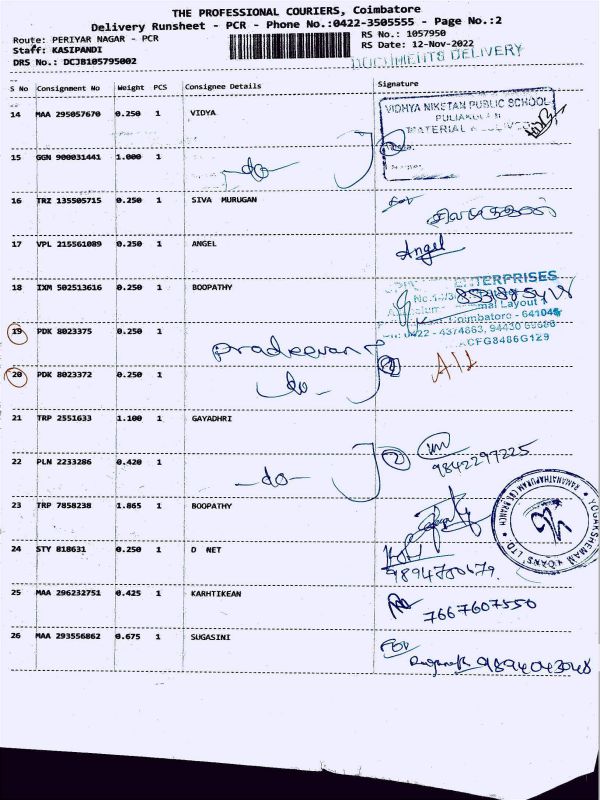 THE PROFESSIONAL COURIERS, Coimbatore
Delivery Runsheet - PCR - Phone No.:0422-3505555 - Page No.:2
Route: PERIYAR NAGAR - PCR
RS No.: 1057950
Staff: KASIPANDI
RS Date: 12-Nov-2022
DRS No.: DCJB105795002
DOCUMENTS DELIVERY
S No Consignment No Weight PCS Consignee Details Signature
14 MAA 295057670 0.250 1 VIDYA
VIDHYA NIKETAN PUBLIC SCHOOL
MATERIAL
15 GGN 900031441 1.000 1
do
16 TRZ 135505715 0.250 1 SIVA MURUGAN
17 VPL 215561089 0.250 1 ANGEL
Angel
18 IXM 502513616 0.250 1 BOOPATHY
ENTERPRISES
Layout
Coimbatore - 641045
19 PDK 8023375 0.250 1
0422 - 4374663, 94430
ACFG8486G129
20 PDK 8023372 0.250 1
do
21 TRP 2551633 1.100 1 GAYADHRI
22 PLN 2233286 0.420 1
-do- 2
9842297225
23 TRP 7858238 1.865 1 BOOPATHY
YOGAKSHEMAM LOANS LTD.
RAMANATHAPURAM CBE BRANCH
24 STY 818631 0.250 1 D NET
9894700679.
25 MAA 296232751 0.425 1 KARHTIKEAN
7667607550
26 MAA 293556862 0.675 1 SUGASINI
For
9894043048